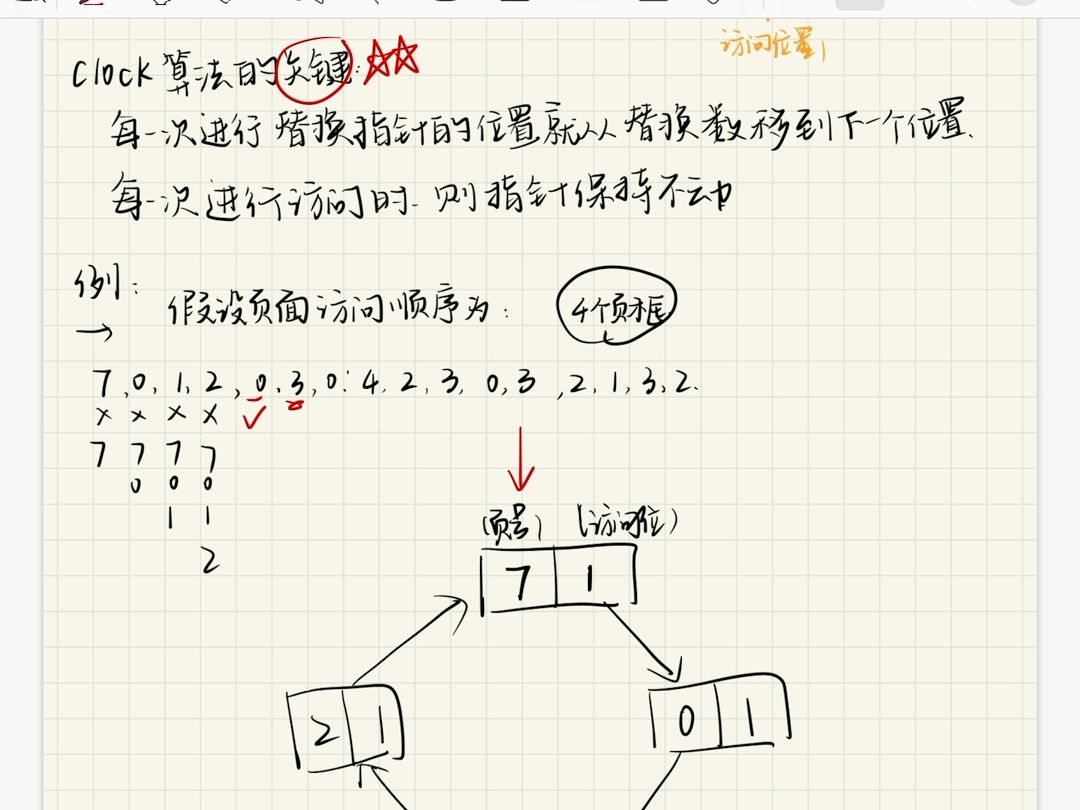 访问位置1
Clock算法的关键:
每一次进行替换指针的位置就从替换数移到下一个位置.
每一次进行访问时.则指针保持不动
例:
假设页面访问顺序为: 4个页框
7,0,1,2,0,3,0,4,2,3,0,3,2,1,3,2.
× × × × ✓
7 7 7 7
0 0 0
1 1
2
(页号) (访问位)
7 1
2 1 0 1